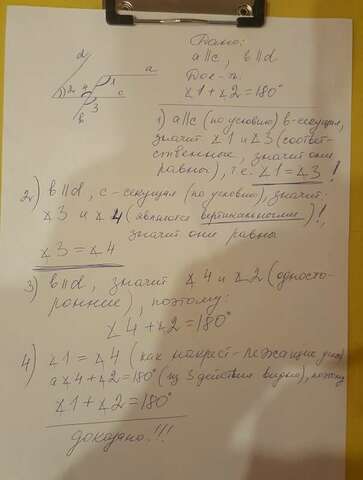 Дано:
a∥c, b∥d
Док-ть:
∠1+∠2=180°
d
a
1
2 4
c
3
b
1) a∥c (по условию) b-секущая,
значит ∠1 и ∠3 (соответ-
ственные, значит они
равны), т.е. ∠1=∠3!
2) b∥d, c-секущая (по условию), значит
∠3 и ∠4 (являются вертикальными)!,
значит они равны
∠3=∠4
3) b∥d, значит ∠4 и ∠2 (односто-
ронние), поэтому:
∠4+∠2=180°
4) ∠1=∠4 (как накрест-лежащие
а ∠4+∠2=180° (из 3 действия видно), поэтому
∠1+∠2=180°
доказано!!!